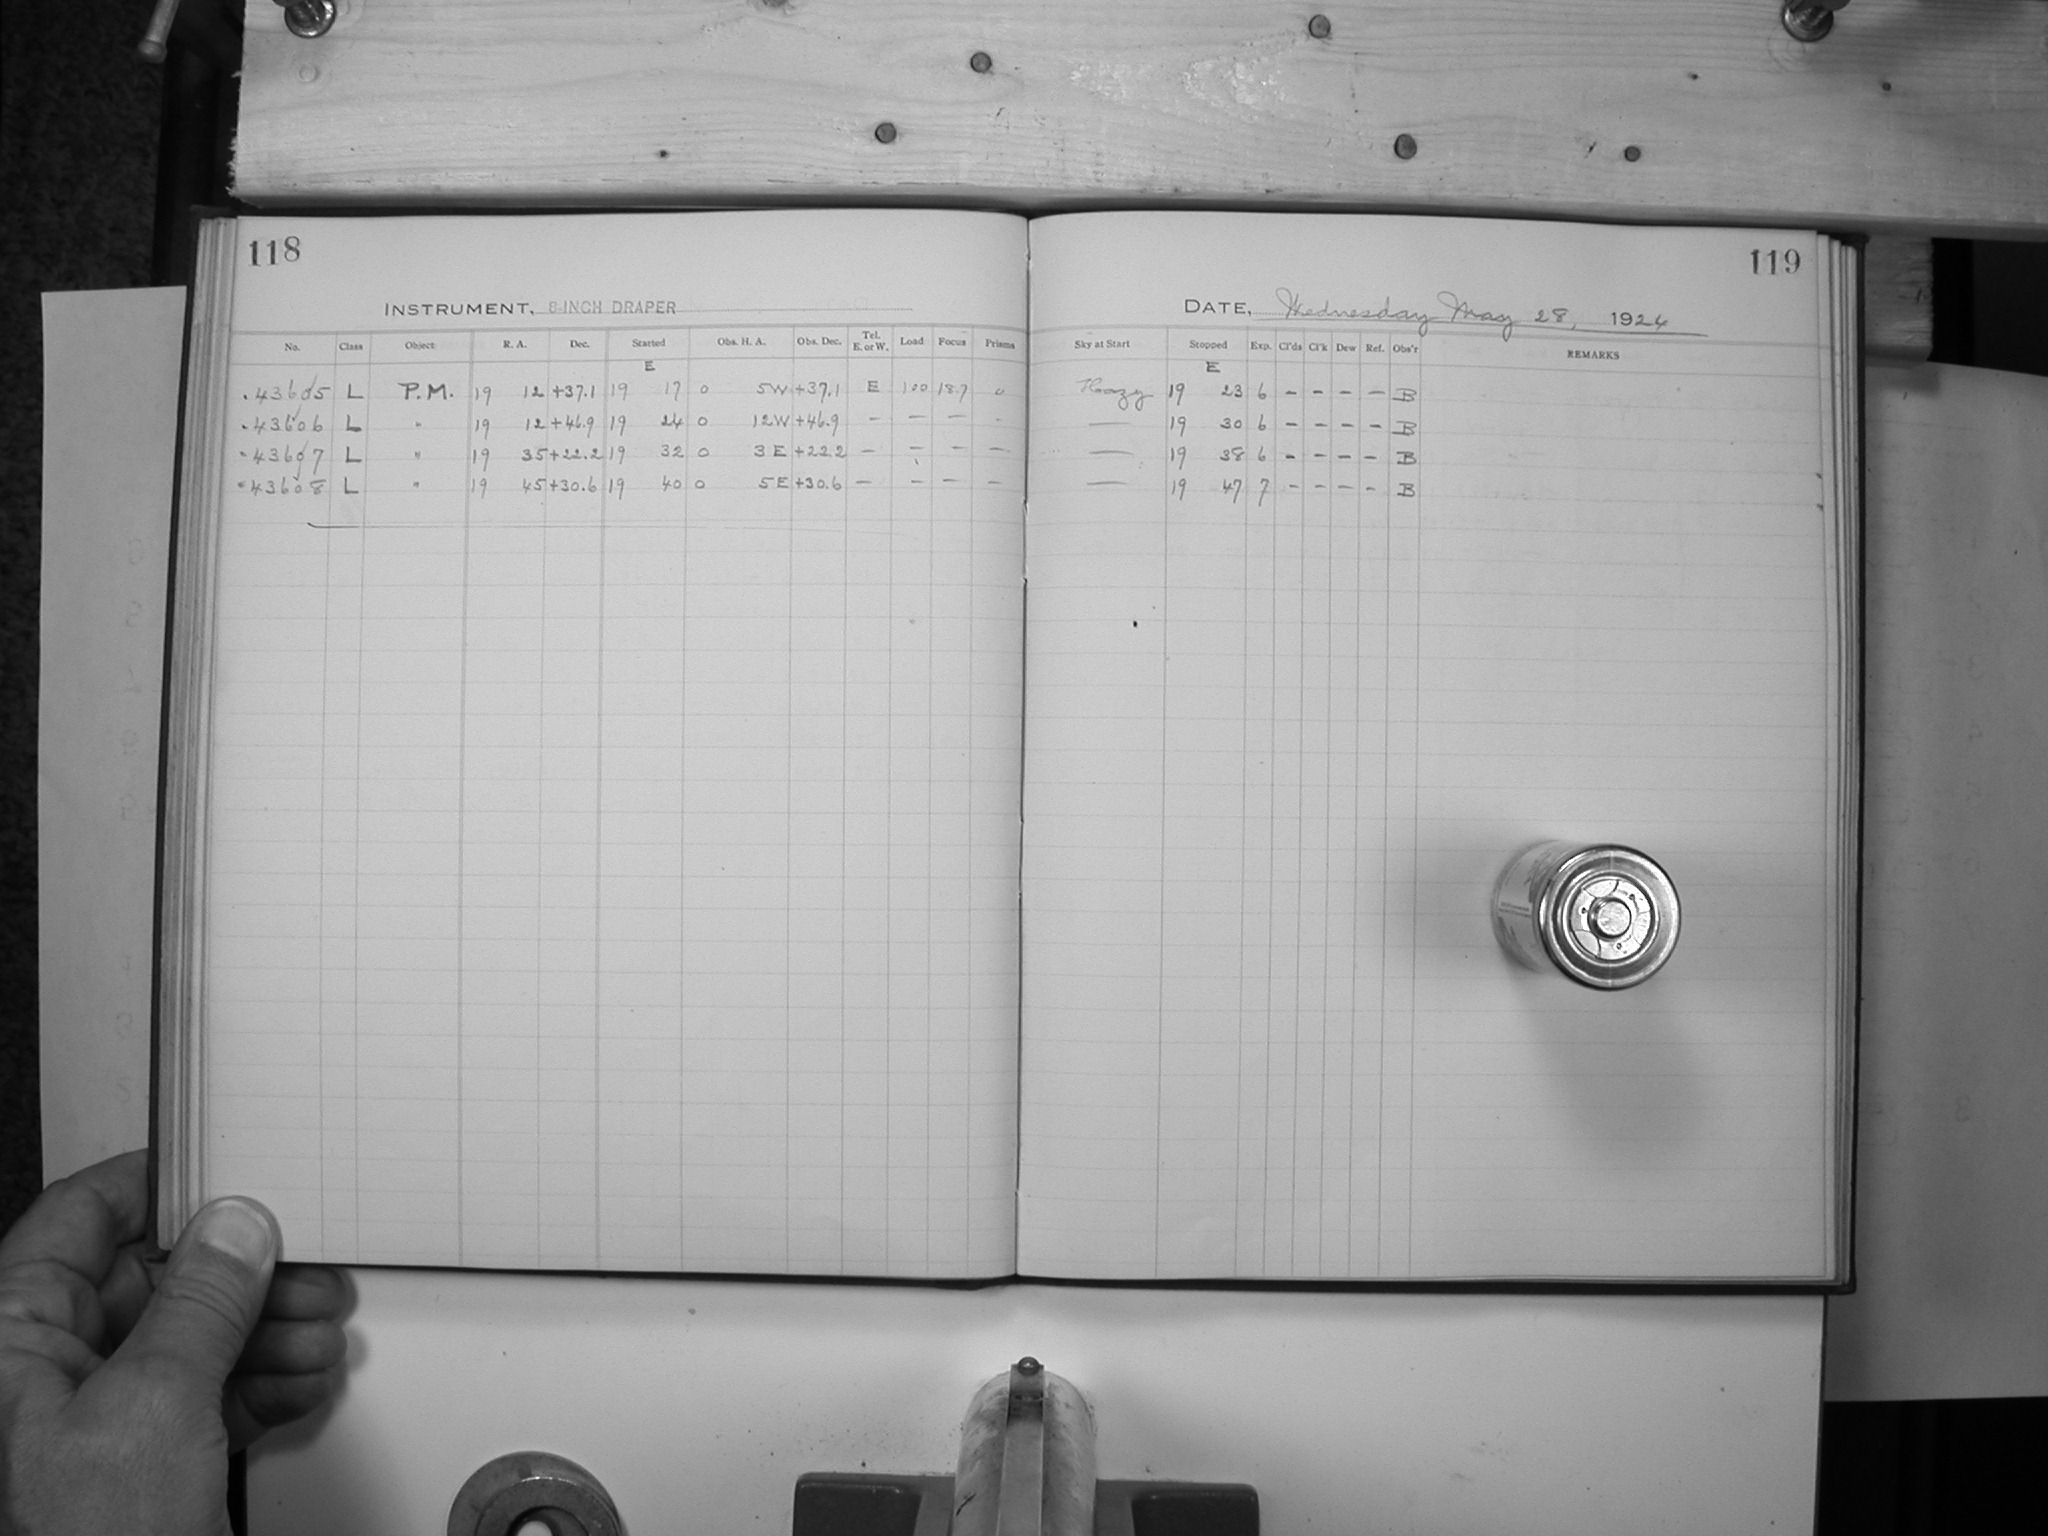 118
119
INSTRUMENT, 8-INCH DRAPER
DATE, Wednesday May 28, 1924
No. Class Object R. A. Dec. Started Obs. H. A. Obs. Dec. Tel. E. or W. Load Focus Prisms Sky at Start Stopped Exp. Cl'ds Cl'k Dew Ref. Obs'r REMARKS
E E
43605 L P.M. 19 12 +37.1 19 17 0 5W +37.1 E 100 18.7 0 Hazy 19 23 6 - - - - B
43606 L " 19 12 +46.9 19 24 0 12W +46.9 - - - - — 19 30 6 - - - - B
43607 L " 19 35 +22.2 19 32 0 3E +22.2 - - - - — 19 38 6 - - - - B
43608 L " 19 45 +30.6 19 40 0 5E +30.6 - - - - — 19 47 7 - - - - B